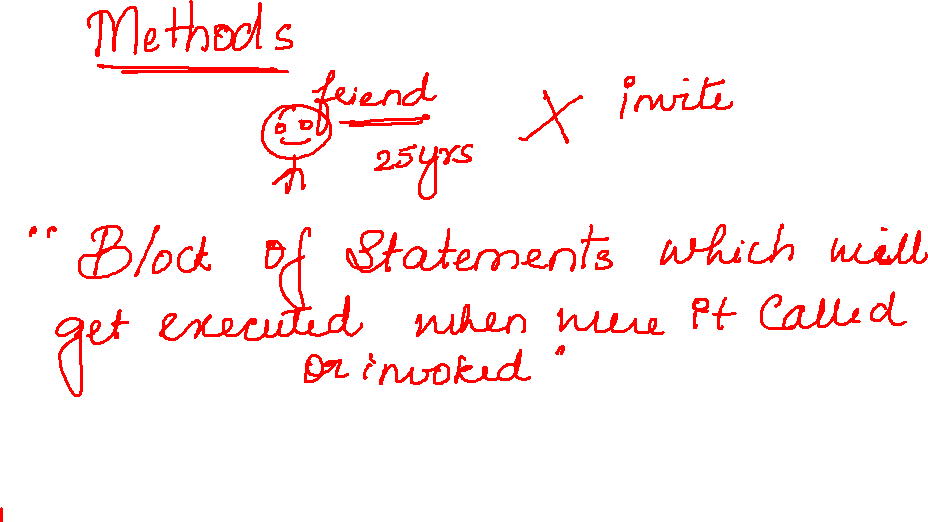 Methods
friend
invite
25yrs
"Block of Statements which will
get executed when were it Called
or invoked"